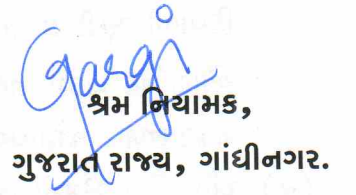 Gargi
શ્રમ નિયામક,
ગુજરાત રાજ્ય, ગાંધીનગર.